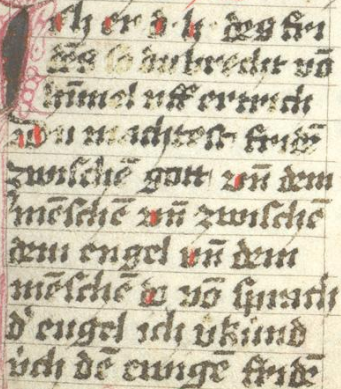 Ich er d· h· des fri
dēs so du brecht vō
himel uff ertrich
Du machtest fridē
zwischē gott vn̄ dem
mēschē vn̄ zwischē
dem engel vn̄ dem
mēschē da vō sprach
d' engel ich v̾künd
üch dē ewigē fridē